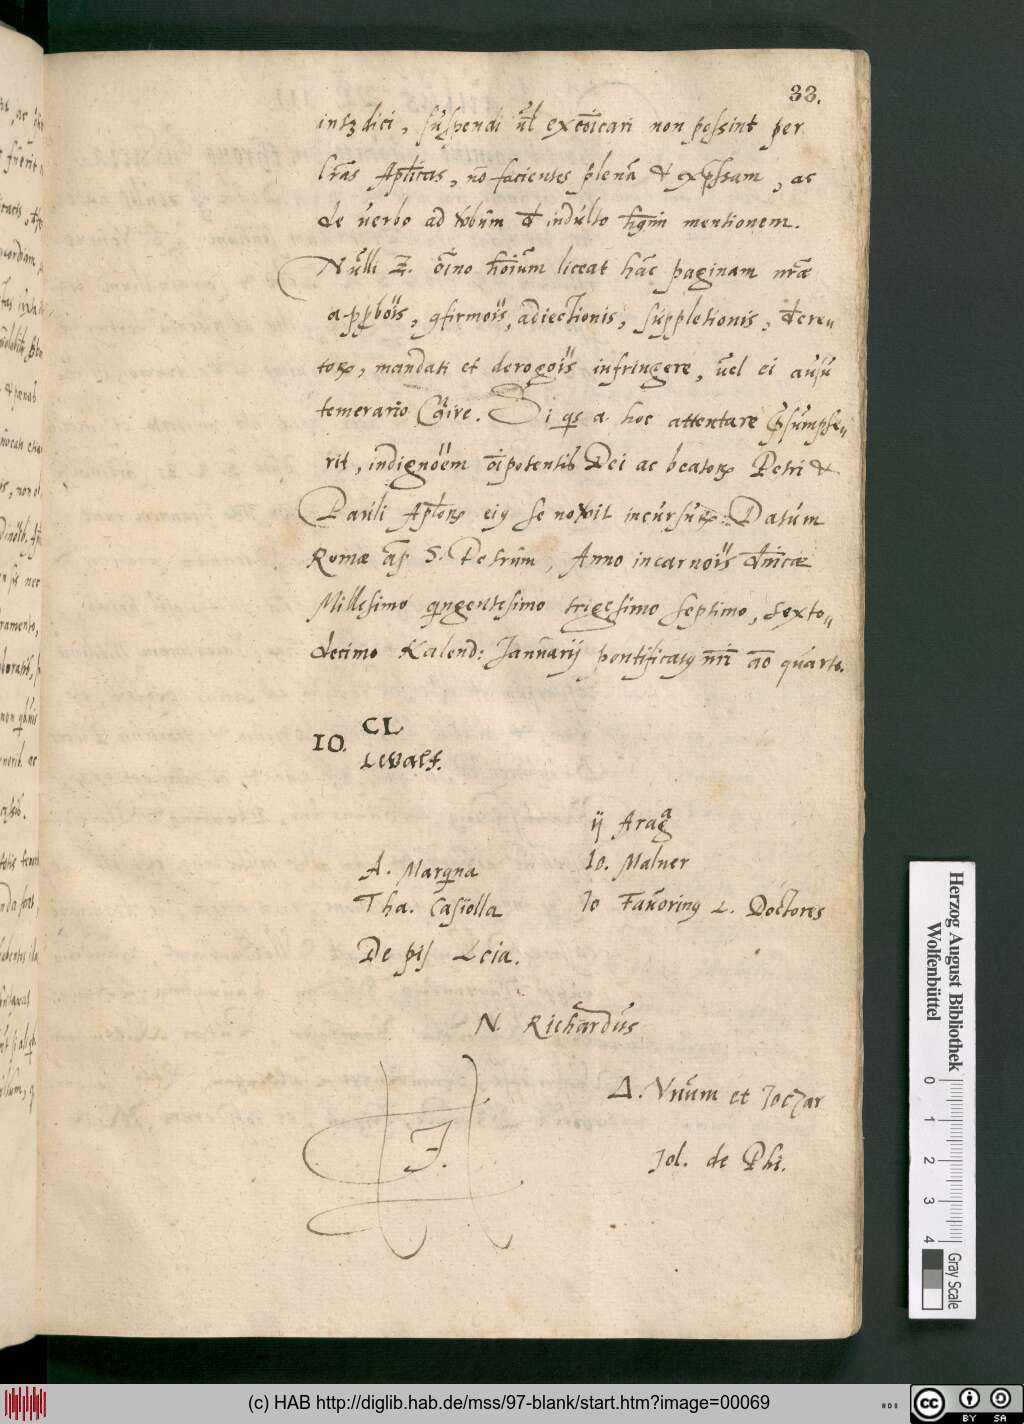 33.
intʒdici, suspendi ūl excōīcari non possint per
lrās Apl̄icas, nō facientes plenā & exp̄ssam, ac
de uerbo ad ūbum d̄ indulto hm̄oi mentionem.
Nulli &. oīno hōium liceat hāc paginam nr̄æ
appbōis, ꝯfirmōis, adiectionis, suppletionis, decre„
toꝝ, mandati et derogōis infringere, uel ei ausu
temerario ꝯ̄ire. Si qs a hoc attentare p̄sumpse„
rit, indignōem oīpotentis Dei ac beatoꝝ Petri &
Pauli Apl̄oꝝ eiꝯ se nouit incursuꝝ: Datum
Romæ ap̄ S. Petrum, Anno incarnōis dn̄icæ
Millesimo qngentesimo trigesimo septimo, sexto„
decimo Kalend: Januarij pontificatꝯ nr̄i ao quarto.
IO. CL
ij Arag
A. Marqna
Io. Malner
Tha. Casiolla
Io Fauorinꝯ L. Doctores
De pis Lcia.
N. Richardus
Δ. Vnum et
J.
Jol. de Phi.
Herzog August Bibliothek
Wolfenbüttel
0 1 2 3 4
Gray Scale
(c) HAB http://diglib.hab.de/mss/97-blank/start.htm?image=00069
cc BY SA